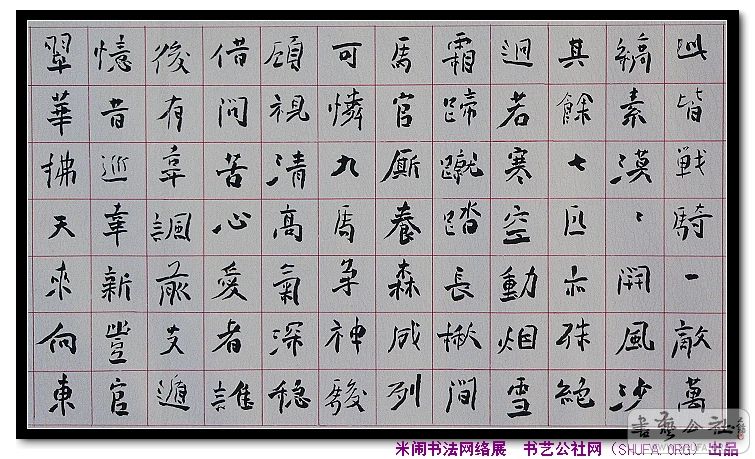 此皆戦騎一敵萬
縞素漠〻開風沙
其餘七匹亦殊絶
迥若寒空動烟雪
霜蹄蹴踏長楸間
馬官廝養森成列
可憐九馬争神駿
顧視清高氣深穏
借問苦心愛者誰
後有韋諷前支遁
憶昔巡幸新豐宫
翠華拂天來向東
米闹书法网络展 书艺公社网（SHUFA.ORG）出品
書藝公社